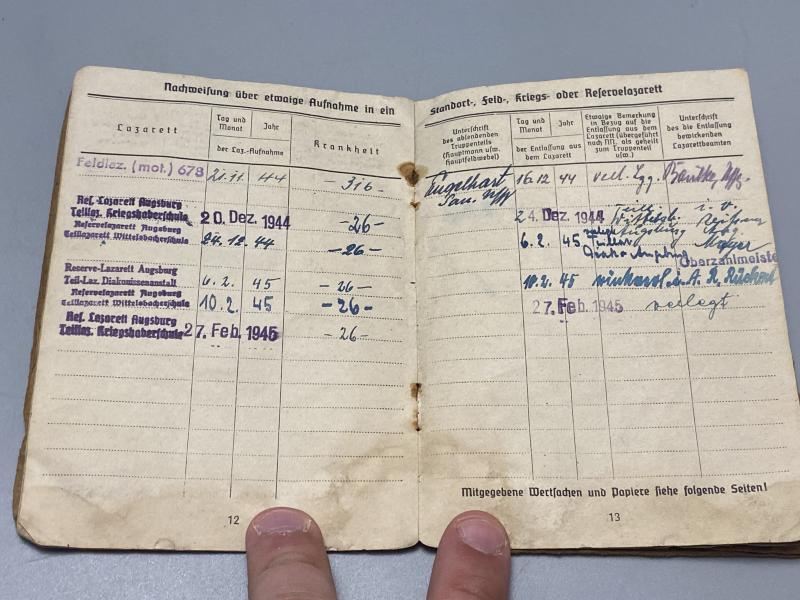 Nachweisung über etwaige Aufnahme in ein
Lazarett
Tag und Monat
Jahr
der Laz.-Aufnahme
Krankheit
Feldlaz. (mot.) 678 21.11 44 – 316 –
Res. Lazarett Augsburg
Teillaz. Kriegshaberschule 20. Dez. 1944 – 26 –
Reservelazarett Augsburg
Teillazarett Wittelsbacherschule 24.12. 44 – 26 –
Reserve-Lazarett Augsburg
Teil-Laz. Diakonissenanstalt 6.2. 45 – 26 –
Reservelazarett Augsburg
Teillazarett Wittelsbacherschule 10.2. 45 – 26 –
Res. Lazarett Augsburg
Teillaz. Kriegshaberschule 27. Feb. 1945 – 26 –
12
Standort-, Feld-, Kriegs- oder Reservelazarett
Unterschrift
des absendenden
Truppenteils
(Hauptmann usw.
Hauptfeldwebel)
Tag und Monat
Jahr
der Entlassung aus dem Lazarett
Etwaige Bemerkung
in Bezug auf die
Entlassung aus dem
Lazarett (übergeführt
nach NN, als geheilt
zum Truppenteil
usw.)
Unterschrift
des die Entlassung
bewirkenden
Lazarettbeamten
Engelhart 16.12 44 verl. Lzg.
San. Uffz
24. Dez. 1944 i. V.
6. 2. 45 Augsburg Mayer
Oberzahlmeister
10.2. 45
27. Feb. 1945 verlegt
Mitgegebene Wertsachen und Papiere siehe folgende Seiten!
13